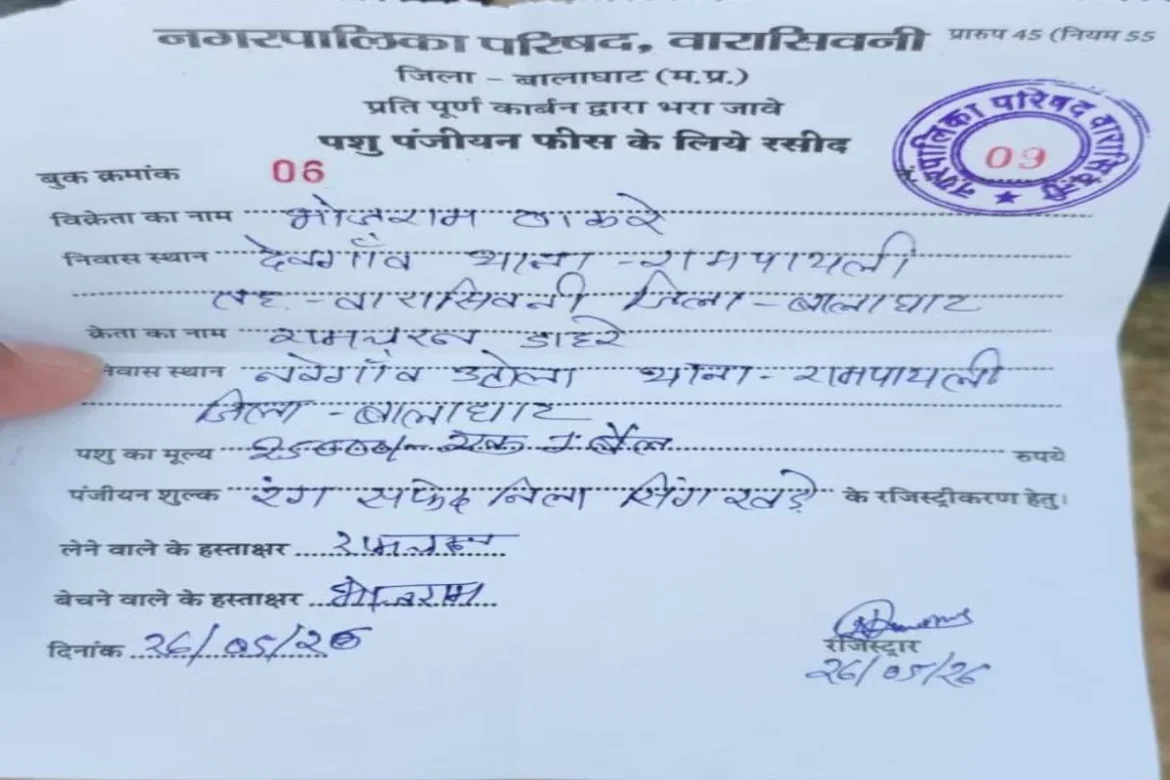 नगरपालिका परिषद, वारासिवनी प्रारुप 45 (नियम 55
जिला - बालाघाट (म.प्र.)
प्रति पूर्ण कार्बन द्वारा भरा जावे
पशु पंजीयन फीस के लिये रसीद
नगरपालिका परिषद वारासिवनी
09
बुक क्रमांक 06
विक्रेता का नाम भोजराम ठाकरे
निवास स्थान देवगाँव थाना - रामपायली
तह - वारासिवनी जिला - बालाघाट
क्रेता का नाम रामचरन डाहरे
निवास स्थान नवेगाँव थाना - रामपायली
जिला - बालाघाट
पशु का मूल्य 25000/- एक बैल रुपये
पंजीयन शुल्क रंग सफेद निला सिंग खड़े के रजिस्ट्रीकरण हेतु।
लेने वाले के हस्ताक्षर रामचरन
बेचने वाले के हस्ताक्षर भोजराम
दिनांक 26/05/26
रजिस्ट्रार
26/05/26